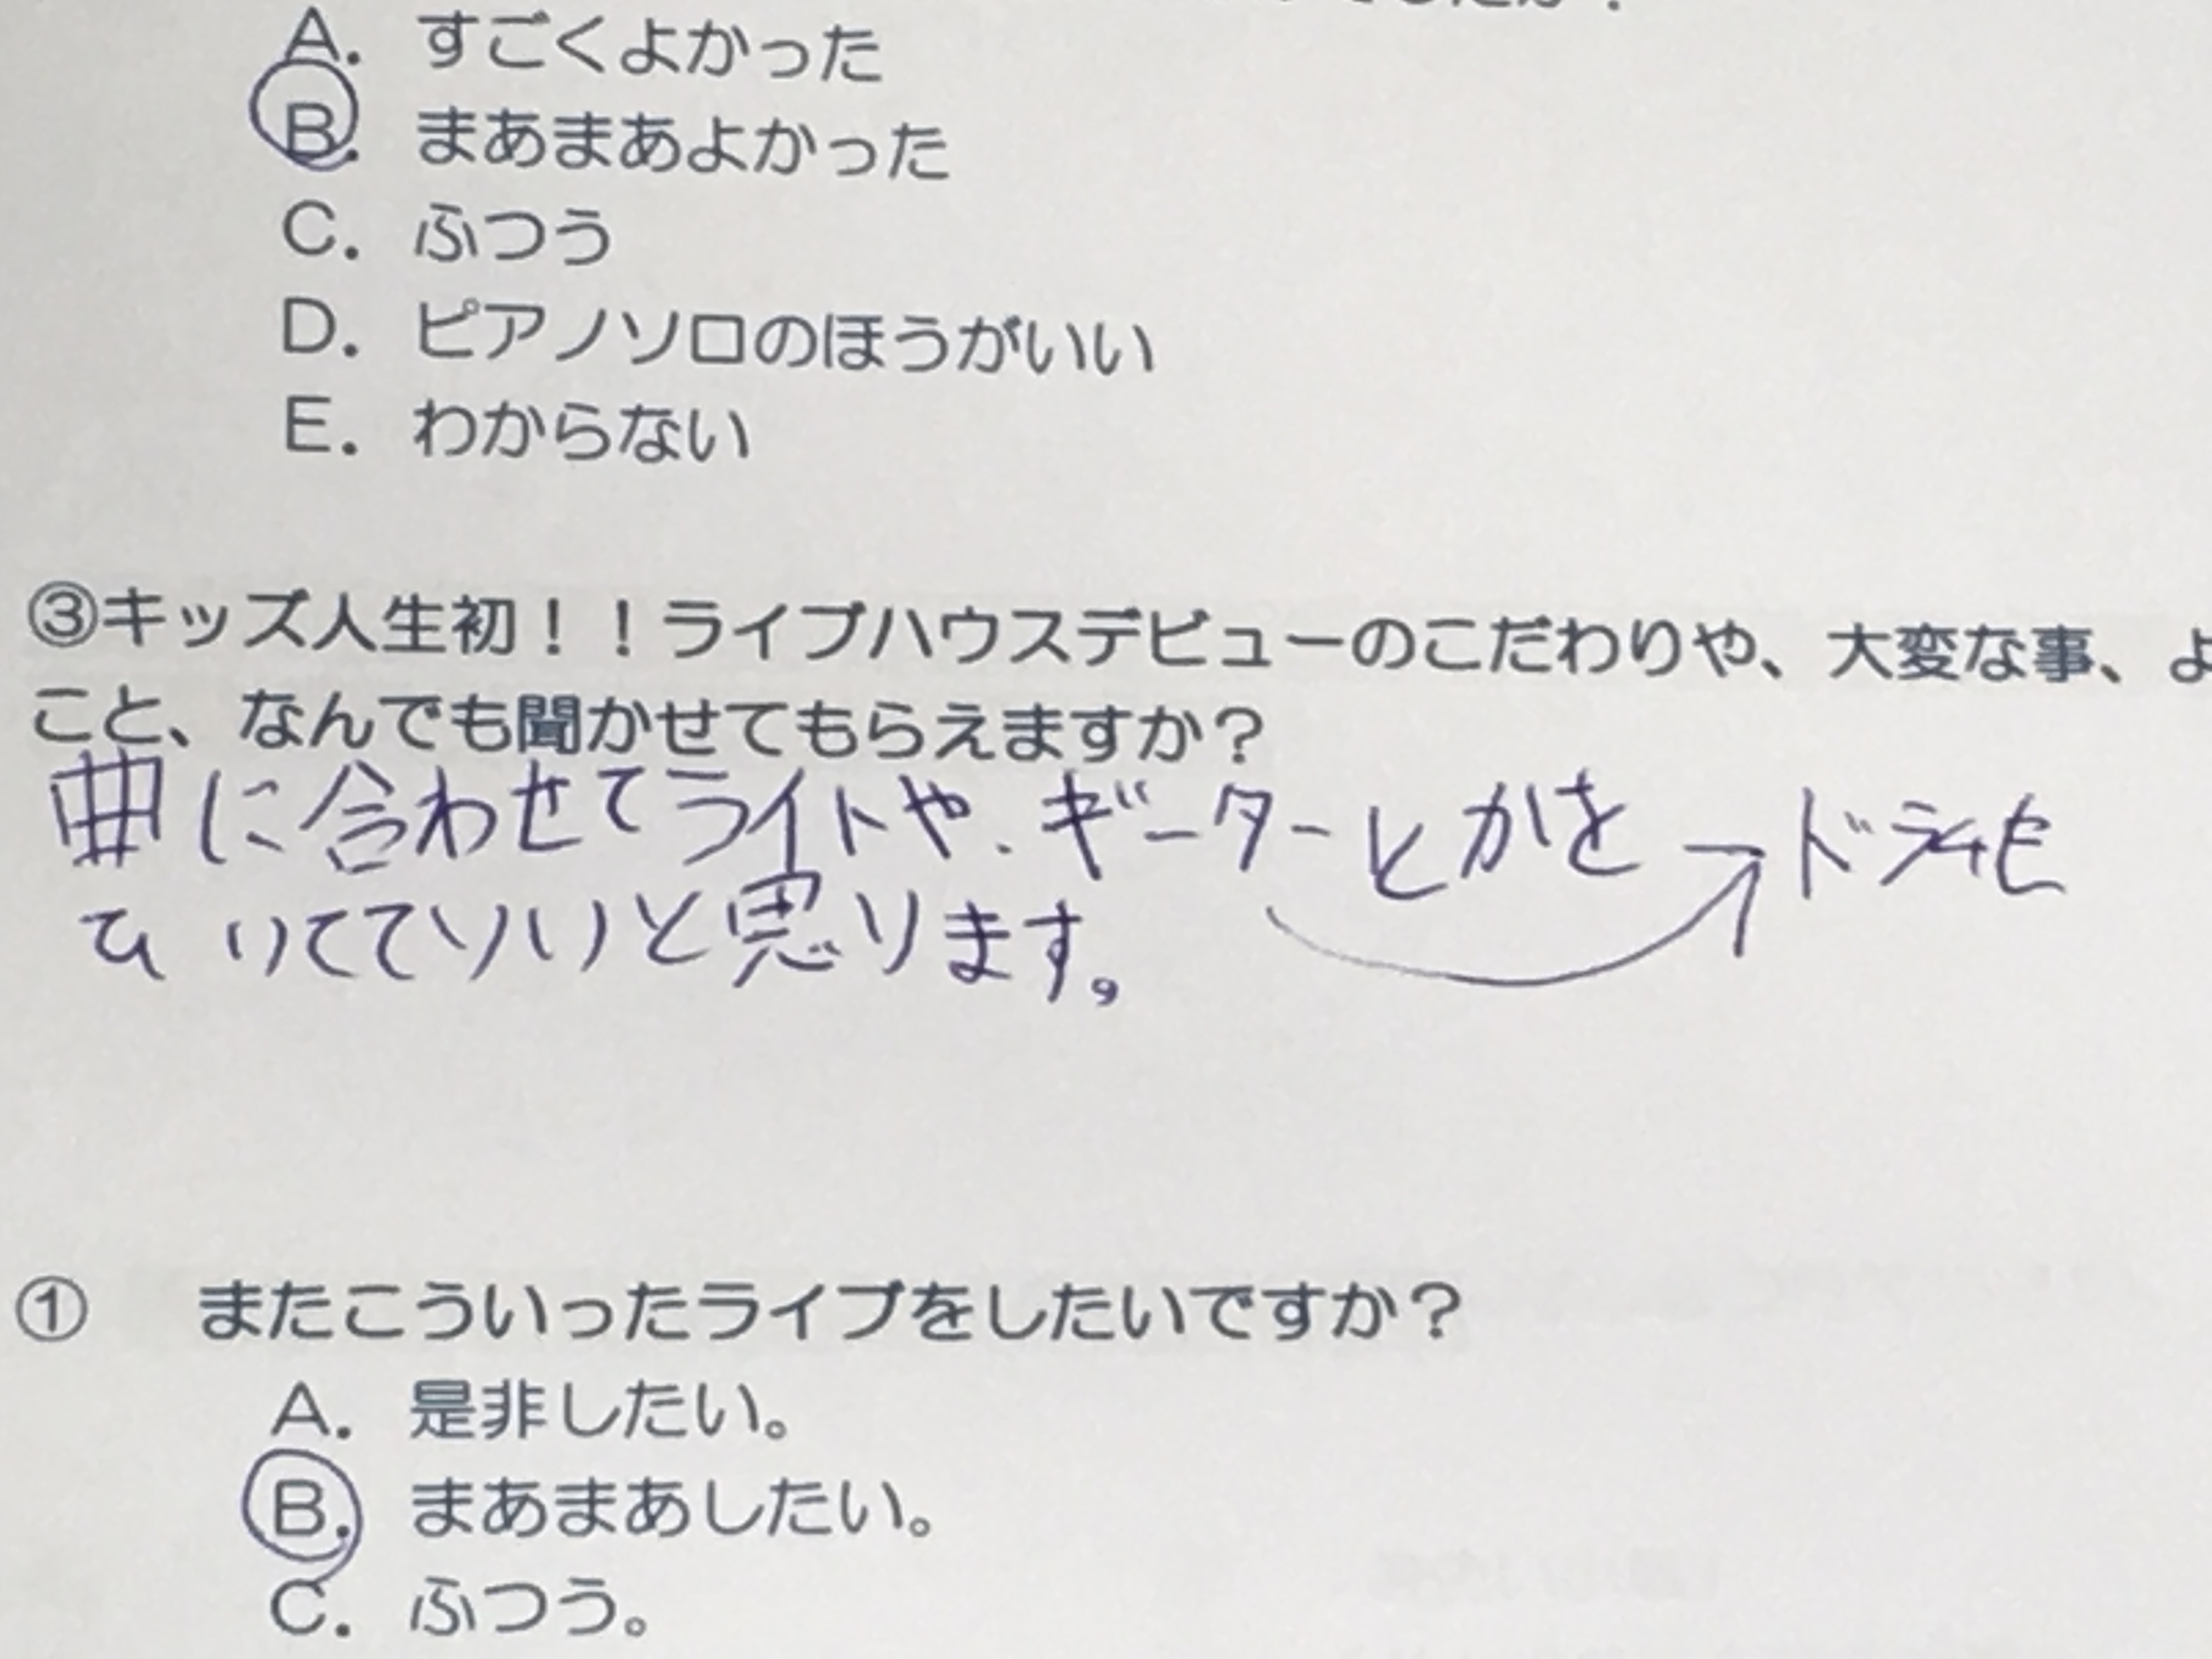 A. すごくよかった
B. まあまあよかった
C. ふつう
D. ピアノソロのほうがいい
E. わからない
③キッズ人生初！！ライブハウスデビューのこだわりや、大変な事、よ
こと、なんでも聞かせてもらえますか？
曲に合わせてライトや、ギーターとかを→ドラムも
ひいてていいと思います。
① またこういったライブをしたいですか？
A. 是非したい。
B. まあまあしたい。
C. ふつう。